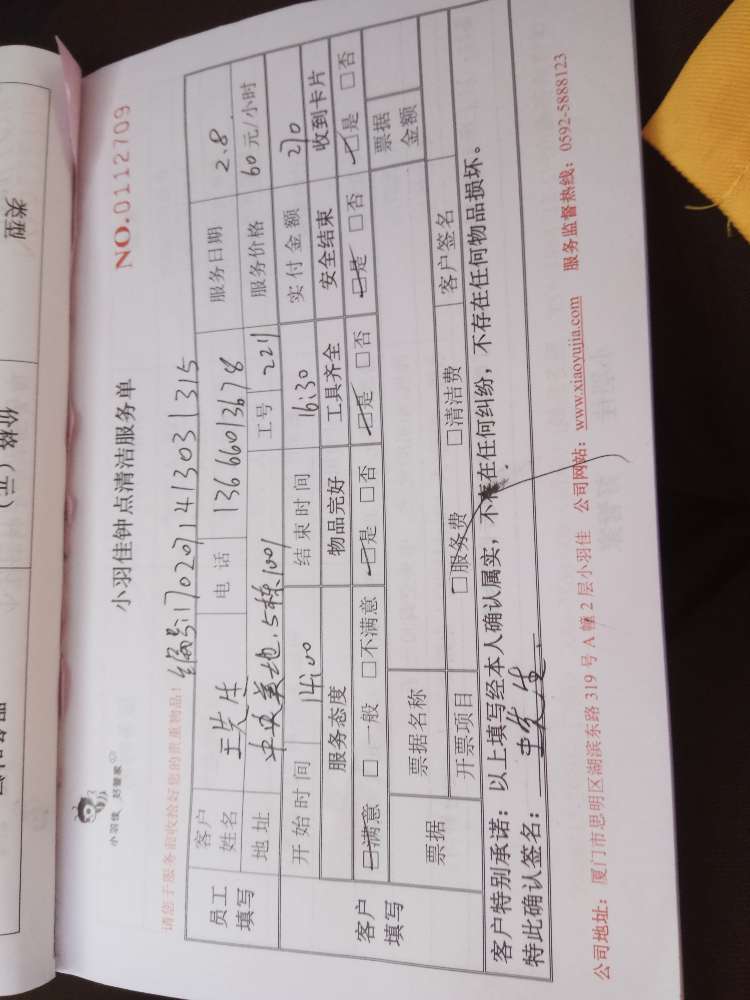 小羽佳 好管家
小羽佳钟点清洁服务单
NO.0112709
请您于服务前收拾好您的贵重物品!
编号:1702071413031315
员工填写
客户姓名 王先生 电话 13666013678 服务日期 2.8
地址 中央美地.5栋1001 工号 2211 服务价格 60元/小时
客户填写
开始时间 14:00 结束时间 16:30 实付金额
服务态度 物品完好 工具齐全 安全结束 收到卡片
☑满意 □一般 □不满意 ☑是 □否 ☑是 □否 ☑是 □否 ☑是 □否
票据 票据名称 票据金额
开票项目 □服务费 □清洁费 客户签名
客户特别承诺:以上填写经本人确认属实,不存在任何纠纷,不存在任何物品损坏。
特此确认签名:王先生.
公司地址:厦门市思明区湖滨东路 319 号 A 幢 2 层小羽佳 公司网站:www.xiaoyujia.com 服务监督热线:0592-5888123
类型
价格(元)